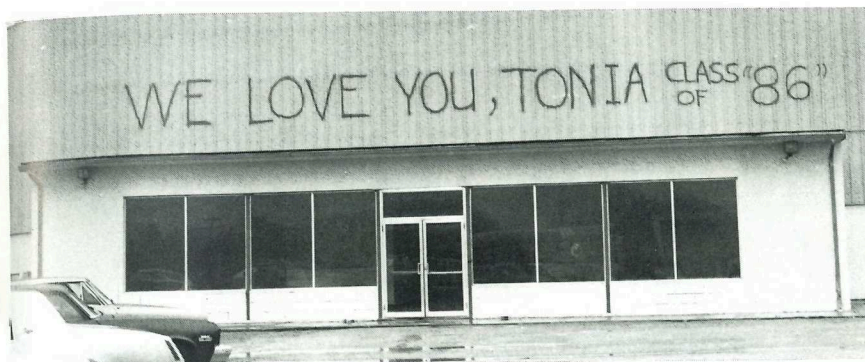 WE LOVE YOU, TONIA CLASS OF "86"